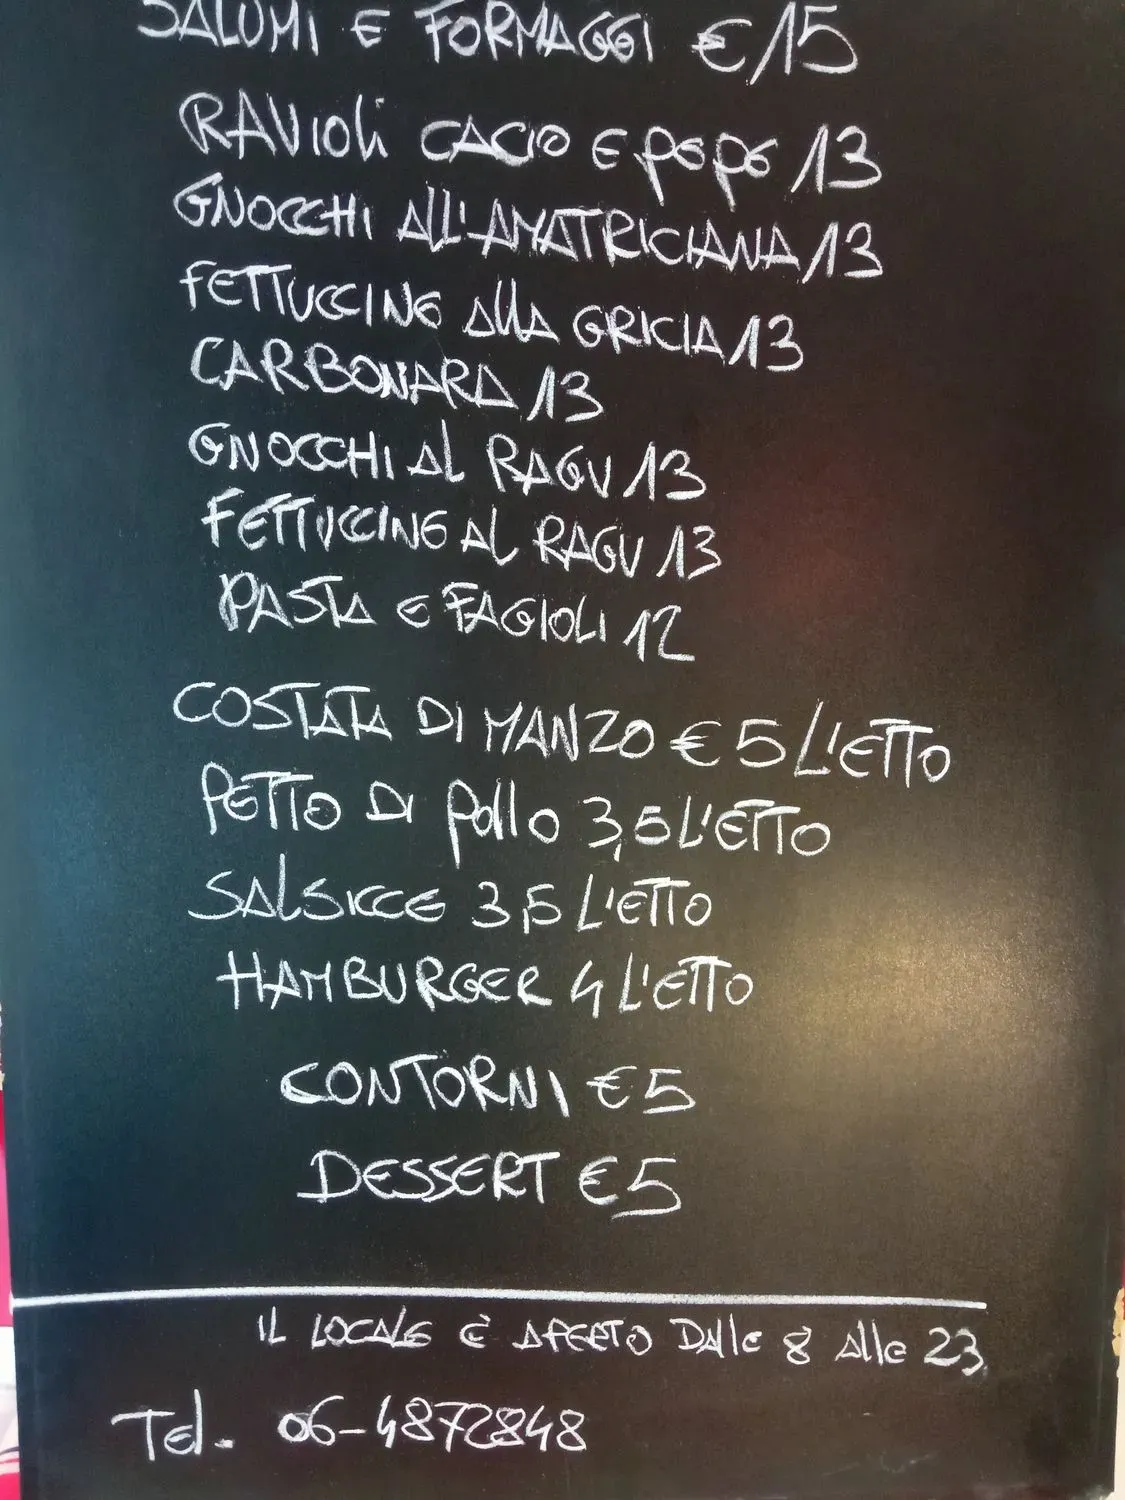 SALUMI E FORMAGGI €15
RAVIOLI CACIO E PEPE 13
GNOCCHI ALL'AMATRICIANA 13
FETTUCCINE ALLA GRICIA 13
CARBONARA 13
GNOCCHI AL RAGU 13
FETTUCCINE AL RAGU 13
PASTA E FAGIOLI 12
COSTATA DI MANZO €5 L'ETTO
PETTO DI POLLO 3,5 L'ETTO
SALSICCE 3,5 L'ETTO
HAMBURGER 4 L'ETTO
CONTORNI €5
DESSERT €5
IL LOCALE È APERTO DALLE 8 ALLE 23
Tel. 06-4872848